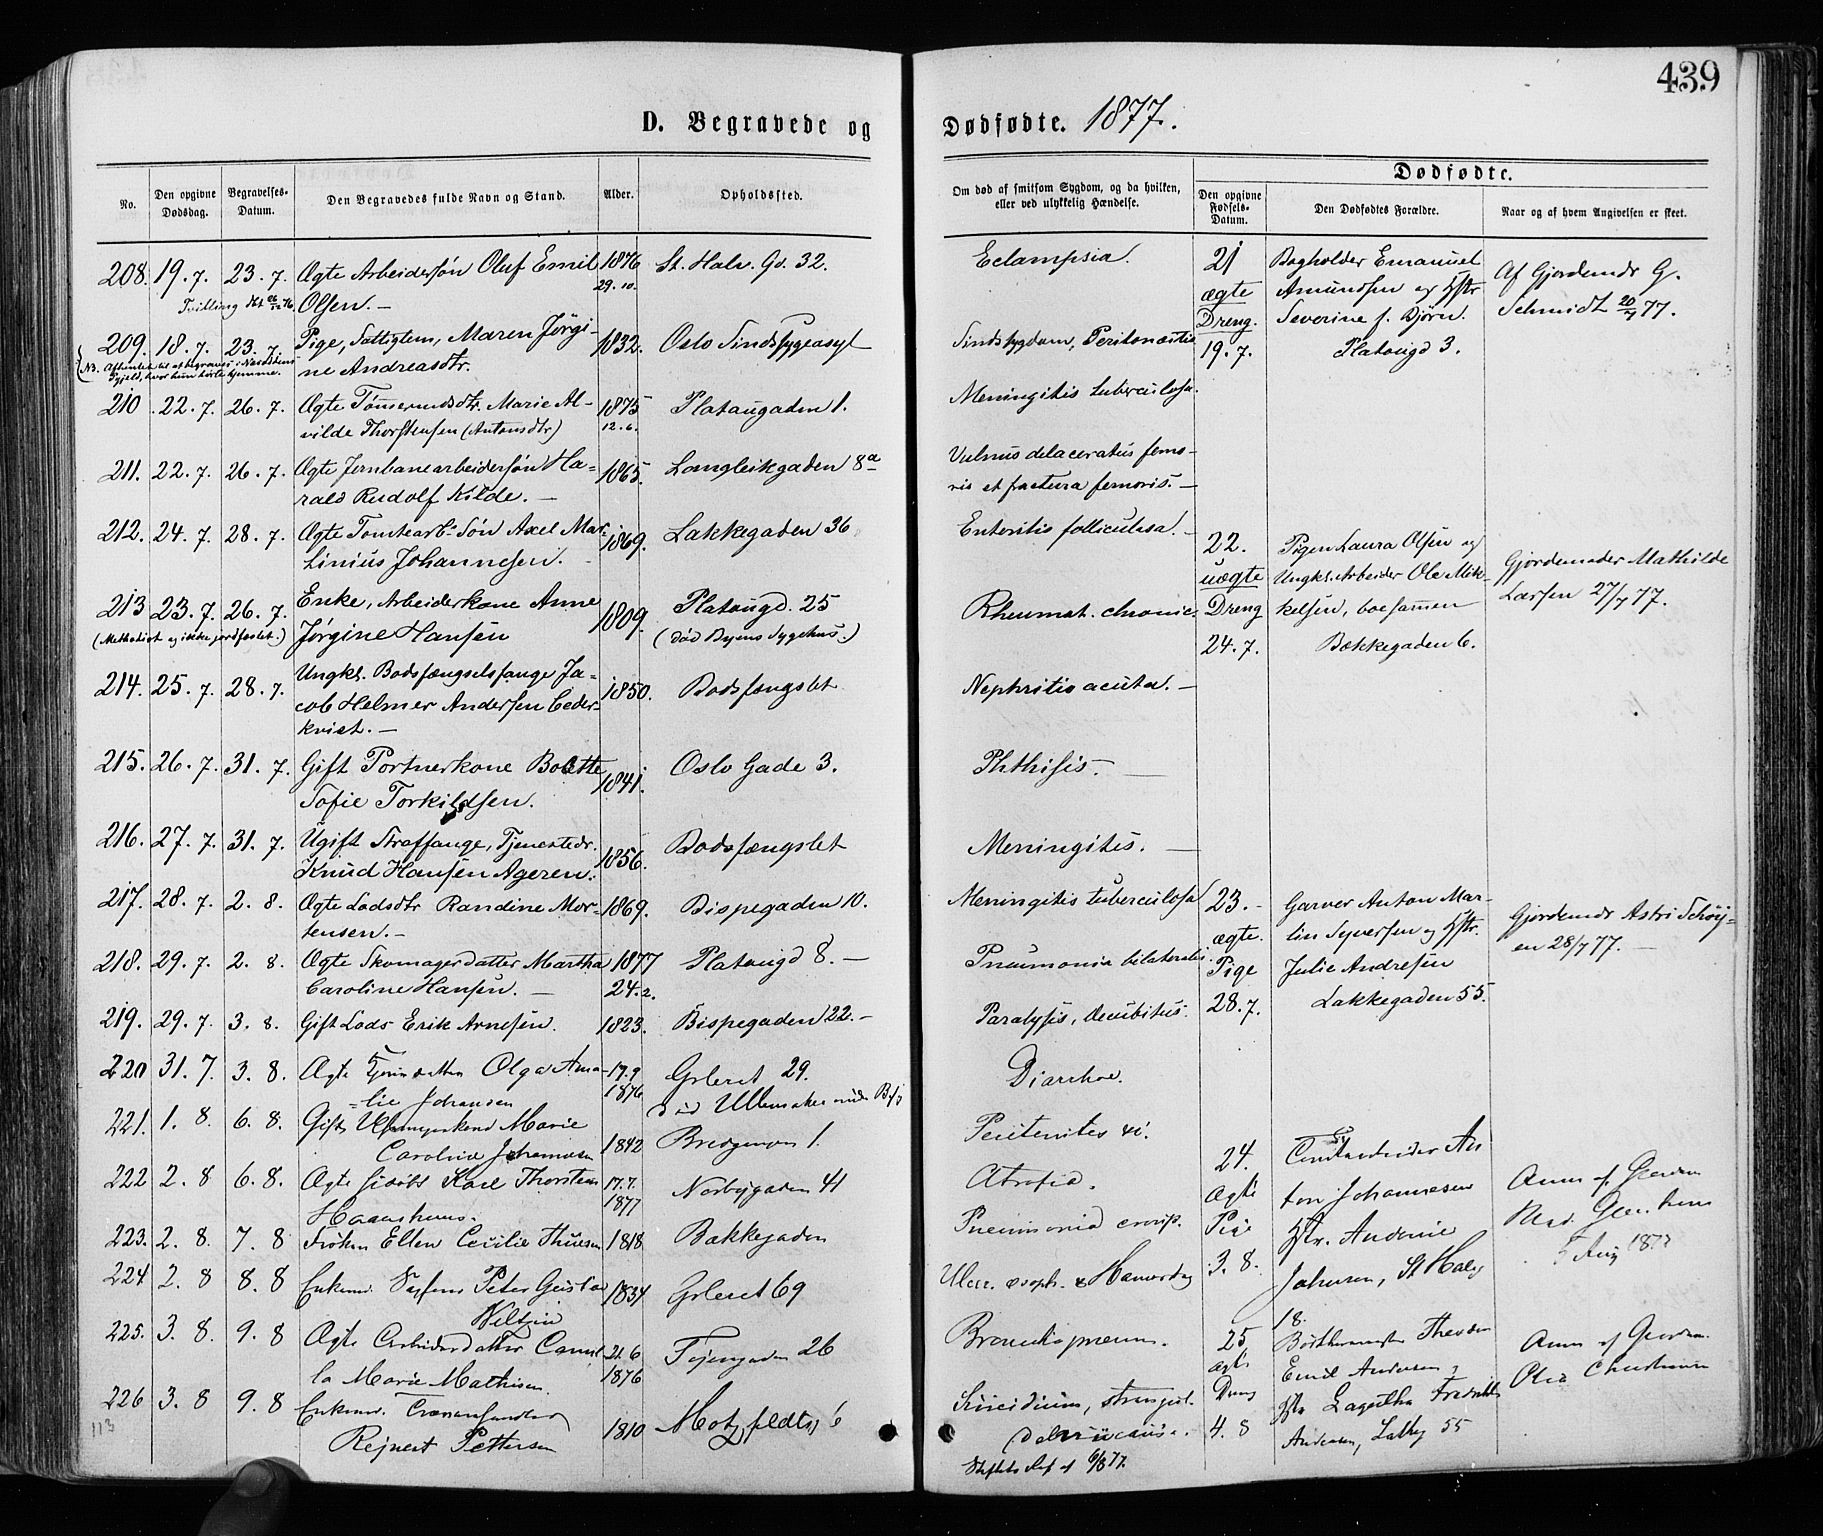 439
D. Begravede og Dødfødte. 1877.
No.
Den opgivne Dødsdag.
Begravelses-Datum.
Den Begravedes fulde Navn og Stand.
Alder.
Opholdssted.
Om død af smitsom Sygdom, og da hvilken, eller ved ulykkelig Hændelse.
Dødfødte.
Den opgivne Fødsels-Datum.
Den Dødfødtes Forældre.
Naar og af hvem Angivelsen er skeet.
208. 19. 7. 23. 7. Ægte Arbeidersøn Oluf Emil 1876 St. Halv. Gd. 32. Eclampsia.
Tvilling Olsen. — 29. 10.
209. 18. 7. 23. 7. Pige, Fattiglem, Maren Jørgi- 1832. Oslo Sindssygeasyl Sindssygdom, Peritonæitis
(NB. Afhentet til at begraves i Næsoddens
hvor hun hørte hjemme. ne Andreasdtr.
210. 22. 7. 26. 7. Ægte Tømermdsdtr. Marie Al- 1875 Platougaden 1. Meningitis tuberculosa.
vilde Thorstensen (Antonsdtr) 12. 6.
211. 22. 7. 26. 7. Ægte Jernbanearbeidersøn Ha- 1865. Langleikgaden 8a Vulnus delaceratus femo-
rald Rudolf Kilde. — ris et fractura femoris. —
212. 24. 7. 28. 7. Ægte Tomtearb. Søn Axel Mar- 1869. Lakkegaden 36 Enteritis folliculosa. —
tinius Johannesen.
213 23. 7. 26. 7. Enke, Arbeiderkone Anne 1809. Platougd. 25 Rheumat. chronic.
(Methodist og ikke jordfæstet.) Jørgine Hansen (død Byens Sygehus.)
214. 25. 7. 28. 7. Ungkl. Bodsfængselsfange Ja- 1850. Bodsfængslet Nephritis acuta. —
cob Helmer Andersen Ceder-
kvist. —
215. 26. 7. 31. 7. Gift Portnerkone Bolette 1841. Oslo Gade 3. Phthisis. —
Sofie Torkildsen.
216. 27. 7. 31. 7. Ugift Straffange, Tjenestedr. 1856. Bodsfængslet Meningites. —
Knud Hansen Ageren.
217. 28. 7. 2. 8. Ægte Lodsdtr Randine Mor- 1869. Bispegaden 10. Meningitis tuberculosa
tensen. —
218. 29. 7. 2. 8. Ægte Skomagerdatter Martha 1877 Platougd 8. — Pneumonia bilateralis.
Caroline Hansen. — 24. 2.
219. 29. 7. 3. 8. Gift Lods Erik Arnesen. 1823. Bispegaden 22. — Paralysis, decubitus.
220 31. 7. 3. 8. Ægte datter Olga Ama- 17. 9 Grleret 29. Diarrhoe.
lie Johansen 1876 død Ullensaker
221. 1. 8. 6. 8. Gift Marie Peritonites
Caroline Johannesen 1842 1.
222 2. 8 6. 8. Ægte Karl Thorsten 17. 7. Norbygaden 41 Atrofia.
1877
223. 2. 8. 7. 8 Frøken Ellen Cecilie Thuesen 1818 Bakkegaden Pneumonia croup.
224 2. 8 8. 8 Enkemd. Peter Gustav 1834 Grleret 69 Ulcer. &
225. 3. 8. 9. 8 Ægte Arbeiderdatter Camil- 21. 6 Tøiengaden 26
la Marie Mathisen. 1876
226 3. 8 9. 8 Enkemd. 1810 Motzfeldtsg 6 Suicidium,
Rejnert Pettersen
6/8 77.
113
21 Bogholder Emanuel Af Gjordemdr G.
ægte Amundsen og Hstr Schmidt 20/7 77.
Dreng. Severine f. Bjørn.
19. 7. Platougd 3.
22. Pigen Laura Olsen og Gjordemoder Mathilde
uægte Ungkl. Arbeider Ole Mik- Larsen 27/7 77.
Dreng kelsen, boe sammen
24. 7. Bækkegaden 6.
23. — Garver Anton Mar- Gjordemdr Astri Schøy-
ægte. tin Syversen og Hstr. en 28/7 77. —
Pige Julie Andresen
28. 7. Lakkegaden 55.
24. An-
Ægte ton Johannesen Anm. af
Pige Hstr. Andrine Mad.
3. 8. Johnsen, St Halv 5 Aug 1877
18.
25 Anm. af
ægte Emil Andersen og Christiansen
Dreng Hstr Lagertha
4. 8 Andersen, 55